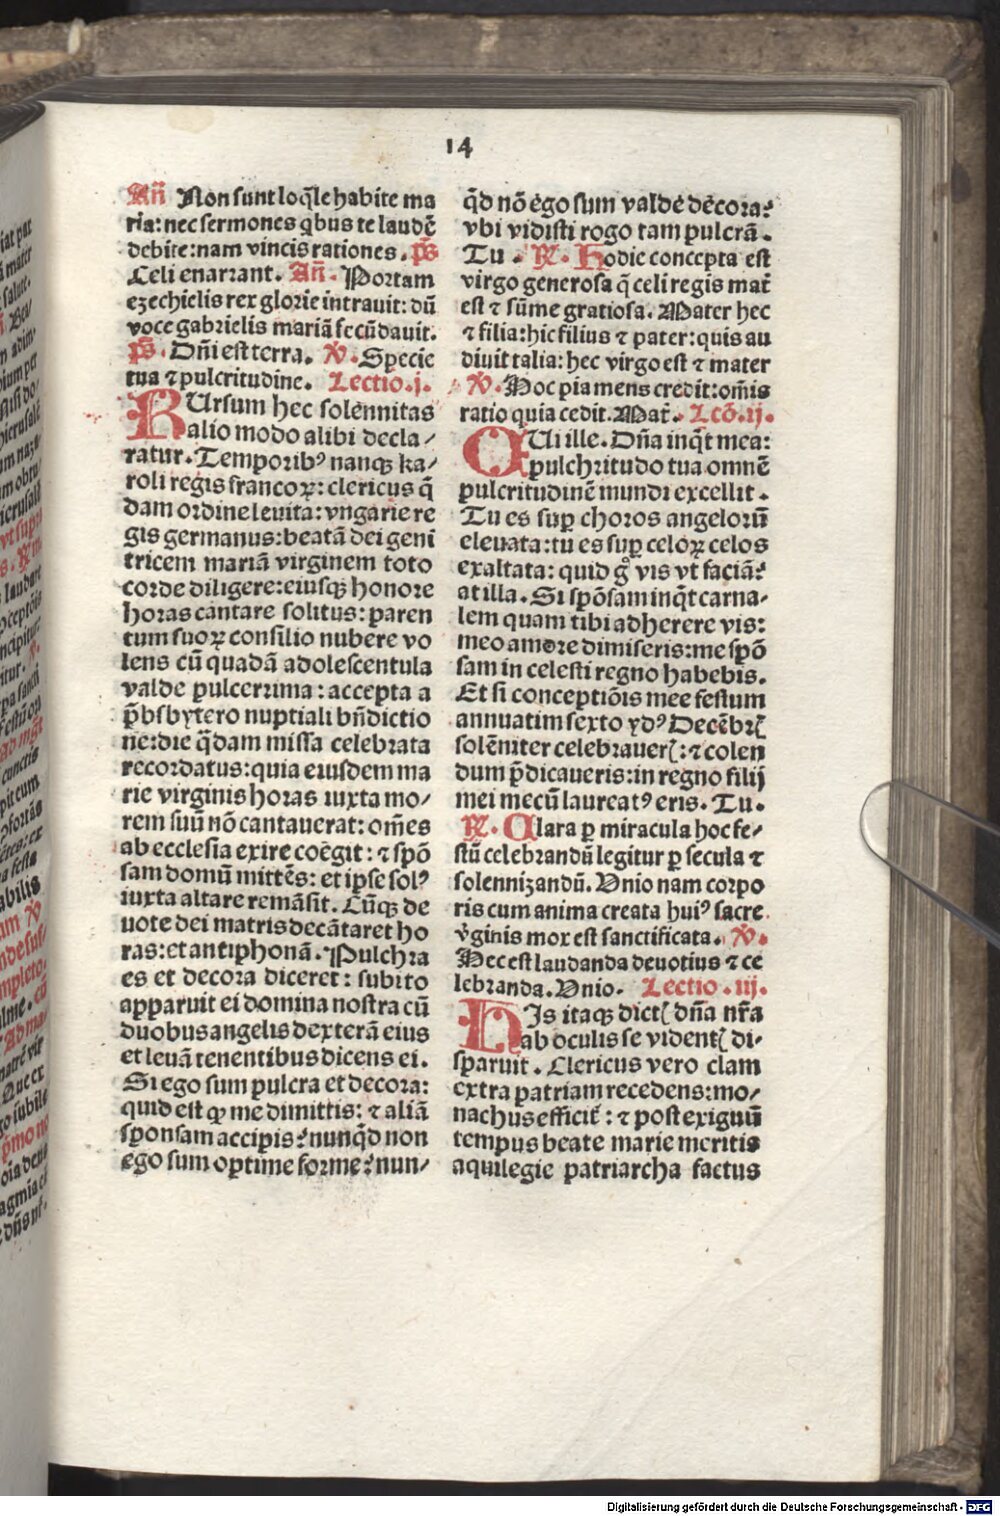 14
Añ Non sunt loq̃le habite ma
ria: nec sermones q̃bus te laudẽ
debite: nam vincis rationes. pš
Celi enarrant. Añ. Portam
ezechielis rex glorie intrauit: dũ
voce gabrielis mariã fecũdauit.
pš. Dñi est terra. ℣. Specie
tua ⁊ pulcritudine. Lectio.j.
RUrsum hec solennitas
alio modo alibi decla/
ratur. Temporibꝰ nanqꝫ ka/
roli regis francoꝝ: clericus q̃
dam ordine leuita: vngarie re
gis germanus: beatã dei geni
tricem mariã virginem toto
corde diligere: eiusqꝫ honore
horas cantare solitus: paren
tum suoꝝ consilio nubere vo
lens cũ quadã adolescentula
valde pulcerrima: accepta a
p̃bsbytero nuptiali bñdictio
ne: die q̃dam missa celebrata
recordatus: quia eiusdem ma
rie virginis horas iuxta mo/
rem suũ nõ cantauerat: om̃es
ab ecclesia exire coëgit: ⁊ spõ
sam domũ mittẽs: et ipse solꝰ
iuxta altare remãsit. Cũqꝫ de
uote dei matris decãtaret ho
ras: et antiphonã. Pulchra
es et decora diceret: subito
apparuit ei domina nostra cũ
duobus angelis dexterã eius
et leuã tenentibus dicens ei.
Si ego sum pulcra et decora:
quid est qꝫ me dimittis: ⁊ aliã
sponsam accipis? nunq̃d non
ego sum optime forme? nun/
q̃d nõ ego sum valde decora?
vbi vidisti rogo tam pulcrã.
Tu. ℟. Hodie concepta est
virgo generosa q̃ celi regis mat̃
est ⁊ sũme gratiosa. Mater hec
⁊ filia: hic filius ⁊ pater: quis au
diuit talia: hec virgo est ⁊ mater
℣. Hoc pia mens credit: om̃is
ratio quia cedit. Mat̃. Lcõ.ij.
QUi ille. Dña inq̃t mea:
pulchritudo tua omnẽ
pulcritudinẽ mundi excellit.
Tu es suꝑ choros angelorũ
eleuata: tu es suꝑ celoꝝ celos
exaltata: quid g̊ vis vt faciã?
at illa. Si spõsam inq̃t carna/
lem quam tibi adherere vis:
meo amore dimiseris: me spõ
sam in celesti regno habebis.
Et si conceptiõis mee festum
annuatim sexto ydꝰ Decẽbꝝ
solẽniter celebraueꝝ: ⁊ colen
dum p̃dicaueris: in regno filij
mei mecũ laureatꝰ eris. Tu.
℟. Clara ꝑ miracula hoc fe/
stũ celebrandũ legitur ꝑ secula ⁊
solennizandũ. Vnio nam corpo
ris cum anima creata huiꝰ sacre
v̾ginis mox est sanctificata. ℣.
Hec est laudanda deuotius ⁊ ce
lebranda. Vnio. Lectio.iij.
HIs itaqꝫ dictꝭ dña nr̃a
ab oculis se videntꝭ di/
sparuit. Clericus vero clam
extra patriam recedens: mo/
nachus efficit̃: ⁊ post exiguũ
tempus beate marie meritis
aquilegie patriarcha factus
Digitalisierung gefördert durch die Deutsche Forschungsgemeinschaft - DFG